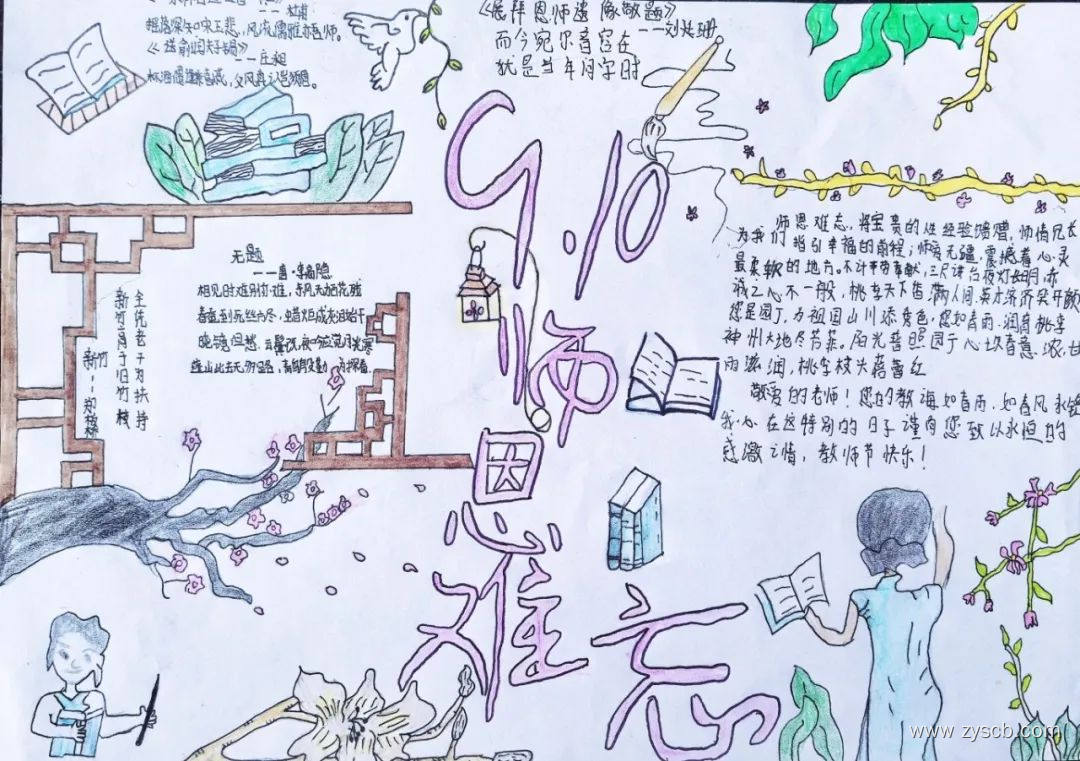 一杜甫
摇落深知宋玉悲，风流儒雅亦吾师。
一一庄昶
《展拜恩师遗像敬题》
而今宛尔音容在
就是当年问字时
9.10
师恩难忘
无题
一一唐·李商隐
相见时难别亦难，东风无力百花残
春蚕到死丝方尽，蜡炬成灰泪始干
晓镜但愁云鬓改，夜吟应觉月光寒
蓬山此去无多路，青鸟殷勤为探看
新竹
新竹高于旧竹枝
全凭老干为扶持
师恩难忘，将宝贵的经验馈赠，师情凡长
为我们指引幸福的前程；师爱无疆，震撼着心灵
最柔软的地方。不计辛劳奉献，三尺讲台夜灯如月，赤
诚之心不一般，桃李天下香满人间，英才济济笑开颜
您是园丁，为祖国山川添秀色，您如春雨，润育桃李
神州大地尽芳菲。阳光普照园丁心坎春意浓，甘
雨滋润，桃李枝头蓓蕾红
敬爱的老师！您的教诲如春雨，如春风永铭
我心在这特别的日子谨向您致以永恒的
感激之情，教师节快乐！
www.zyscb.com